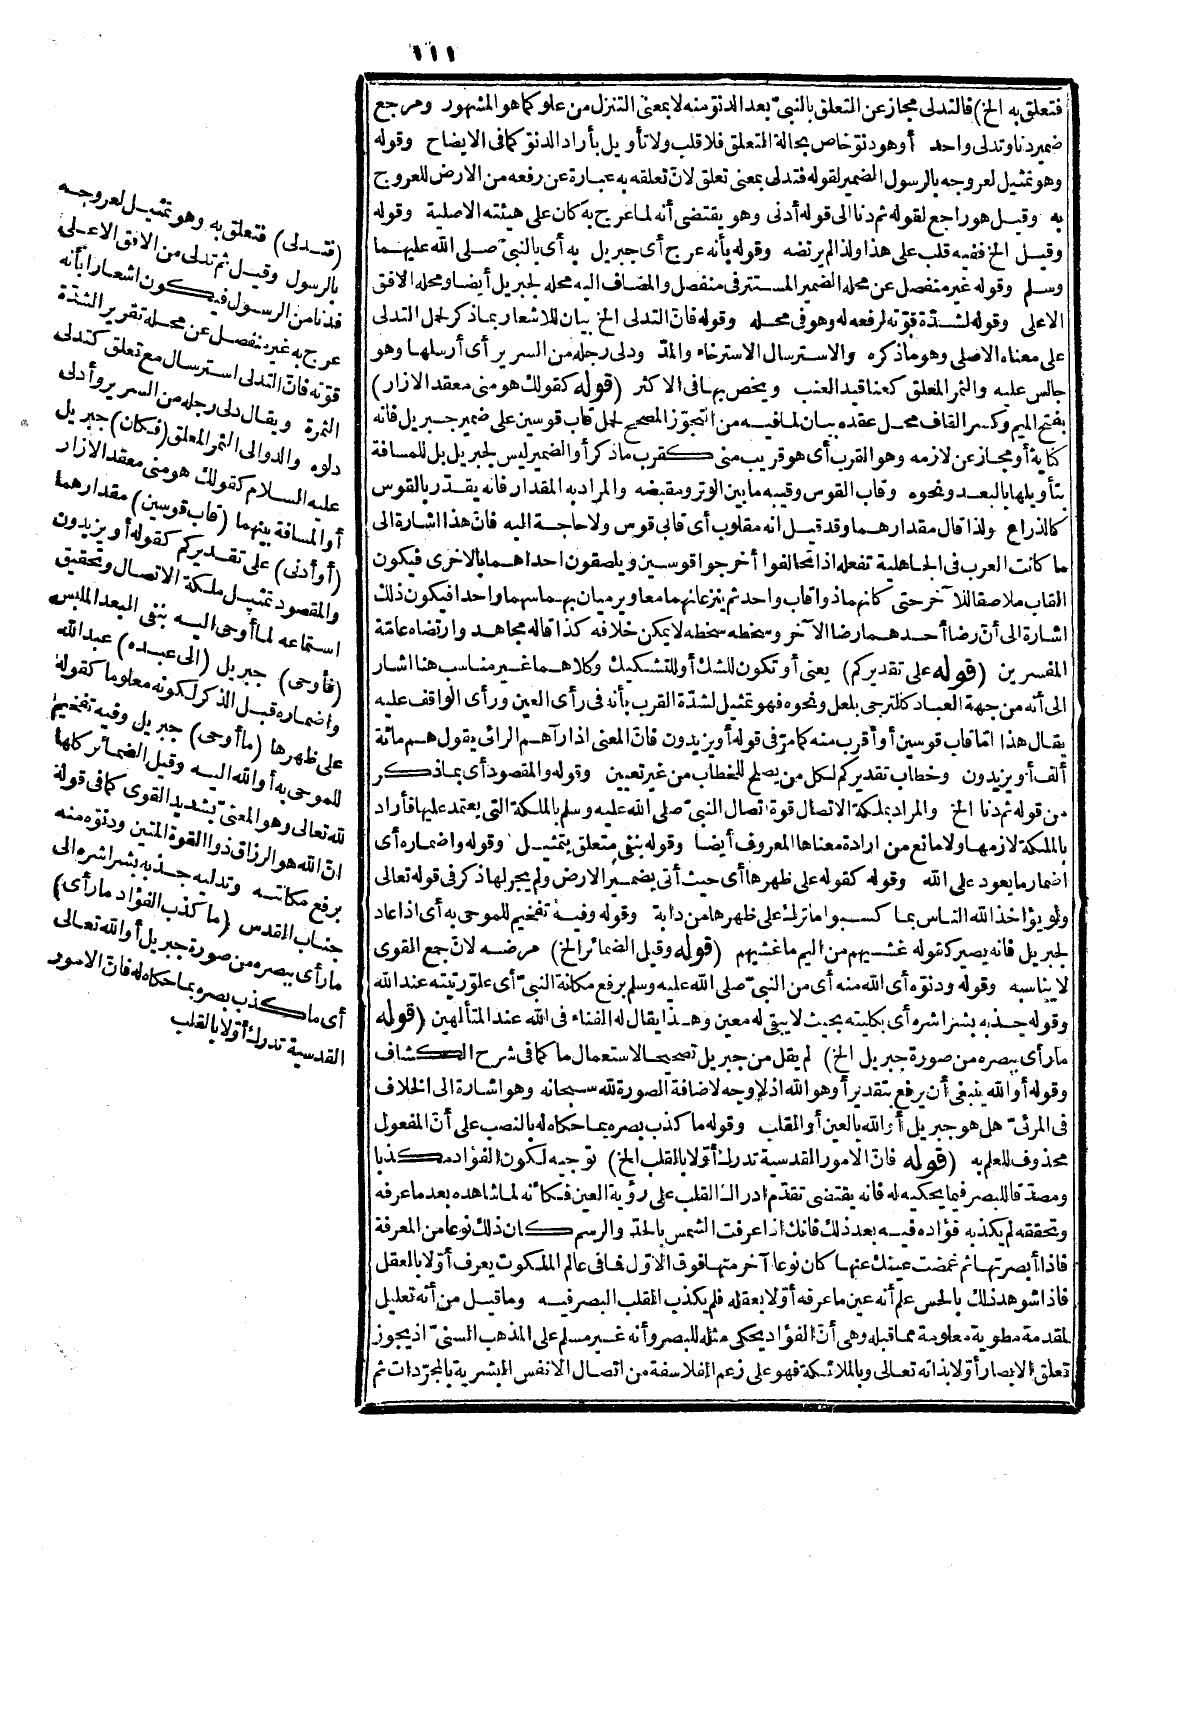 ١١١
فتعلق به الخ) فالتدلى مجاز عن التعلق بالنبىّ بعد الدنوّ منه لا بمعنى التنزل من علو كما هو المشهور ومرجع
ضمير دنا وتدلى واحد أو هو دنوّ خاص بحالة التعلق فلا قلب ولا تأويل بأراد الدنوّ كما فى الايضاح وقوله
وهو تمثيل لعروجه بالرسول الضمير لقوله فتدلى بمعنى تعلق لانّ تعلقه به عبارة عن رفعه من الارض للعروج
به وقيل هو راجع لقوله ثم دنا الى قوله أدنى وهو يقتضى أنه لما عرج به كان على هيئته الاصلية وقوله
وقيل الخ ففيه قلب على هذا ولذا لم يرتضه وقوله بأنه عرج أى جبريل به أى بالنبىّ صلى الله عليهما
وسلم وقوله غير منفصل عن محله الضمير المستتر فى منفصل والمضاف اليه محله لجبريل أيضا ومحله الافق
الاعلى وقوله لشدّة قوّته لرفعه له وهو فى محله وقوله فانّ التدلى الخ بيان للاشعار بما ذكر لحمل التدلى
على معناه الاصلى وهو ما ذكره والاسترسال الاسترخاء والمدّ ودلى رجله من السرير أى أرسلها وهو
جالس عليه والثمر المعلق كعناقيد العنب ويخص بها فى الاكثر (قوله كقولك هو منى معقد الازار)
بفتح الميم وكسر القاف محل عقده بيان لما فيه من التجوّز المصحح لحمل قاب قوسين على ضمير جبريل فانه
كناية أو مجاز عن لازمه وهو القرب أى هو قريب منى كقرب ما ذكر أو الضمير ليس لجبريل بل للمسافة
بتأويلها بالبعد ونحوه وقاب القوس وقيبه ما بين الوتر ومقبضه والمراد به المقدار فانه يقدّر بالقوس
كالذراع ولذا قال مقدارهما وقد قيل انه مقلوب أى قابى قوس ولا حاجة اليه فانّ هذا اشارة الى
ما كانت العرب فى الجاهلية تفعله اذا تحالفوا أخرجوا قوسين ويلصقون احداهما بالاخرى فيكون
القاب ملاصقا للآخر حتى كأنهما ذوا قاب واحد ثم ينزعانهما معا ويرميان بهما سهما واحدا فيكون ذلك
اشارة الى أنّ رضا أحدهما رضا الآخر وسخطه سخطه لا يمكن خلافه كذا قاله مجاهد وارتضاه عامّة
المفسرين (قوله على تقديركم) يعنى أو تكون للشك أو للتشكيك وكلاهما غير مناسب هنا اشار
الى أنه من جهة العباد كالترجى بلعل ونحوه فهو تمثيل لشدّة القرب بأنه فى رأى العين ورأى الواقف عليه
يقال هذا امّا قاب قوسين أو أقرب منه كما مرّ فى قوله أو يزيدون فانّ المعنى اذا رآهم الرائى يقول هم مائة
ألف أو يزيدون وخطاب تقديركم لكل من يصلح للخطاب من غير تعيين وقوله والمقصود أى بما ذكر
من قوله ثم دنا الخ والمراد بملكة الاتصال قوة اتصال النبىّ صلى الله عليه وسلم بالملكة التى يعتمد عليها فأراد
بالملكة لازمها ولا مانع من ارادة معناها المعروف أيضا وقوله بنفى متعلق بتمثيل وقوله واضماره أى
اضمار ما يعود على الله وقوله كقوله على ظهرها أى حيث أتى بضمير الارض ولم يجر لها ذكر فى قوله تعالى
ولو يؤاخذ الله الناس بما كسبوا ما ترك على ظهرها من دابة وقوله وفيه تفخيم للموحى به أى اذا عاد
لجبريل فانه يصير كقوله غشيهم من اليم ما غشيهم (قوله وقيل الضمائر الخ) مرضه لانّ جمع القوى
لا يناسبه وقوله ودنوّه أى الله منه أى من النبىّ صلى الله عليه وسلم برفع مكانة النبىّ أى علوّ رتبته عند الله
وقوله جذبه بشراشره أى بكليته بحيث لا يبقى له معين وهذا يقال له الفناء فى الله عند المتألهين (قوله
ما رأى ببصره من صورة جبريل الخ) لم يقل من جبريل تصحيحا لاستعمال ما كما فى شرح الكشاف
وقوله أو الله ينبغى أن يرفع بتقدير أو هو الله اذ لا وجه لاضافة الصورة لله سبحانه وهو اشارة الى الخلاف
فى المرئىّ هل هو جبريل أو الله بالعين أو القلب وقوله ما كذب بصره بما حكاه له بالنصب على أنّ المفعول
محذوف للعلم به (قوله فانّ الامور القدسية تدرك أوّلا بالقلب الخ) توجيه لكون الفؤاد مكذبا
ومصدّقا للبصر فيما يحكيه له فانه يقتضى تقدّم ادراك القلب على رؤية العين فكأنه لما شاهده بعد ما عرفه
وتحققه لم يكذبه فؤاده فيه بعد ذلك فانك اذا عرفت الشمس بالحدّ والرسم كان ذلك نوعا من المعرفة
فاذا أبصرتها ثم غمضت عينك عنها كان نوعا آخر منها فوق الاوّل فما فى عالم الملكوت يعرف أوّلا بالعقل
فاذا شوهد ذلك بالحس علم أنه عين ما عرفه أوّلا بعقله فلم يكذب القلب البصر فيه وما قيل من أنه تعليل
لمقدمة مطوية معلومة مما قبله وهى أنّ الفؤاد يحكى مثله للبصر وأنه غير مسلم على المذهب السنىّ اذ يجوز
تعلق الابصار أوّلا بذاته تعالى وبالملائكة فهو على زعم الفلاسفة من اتصال الانفس البشرية بالمجرّدات ثم
(فتدلى) فتعلق به وهو تمثيل لعروجه
بالرسول وقيل ثم تدلى من الافق الاعلى
فدنا من الرسول فيكون اشعارا بأنه
عرج به غير منفصل عن محله تقرير الشدّة
قوّته فانّ التدلى استرسال مع تعلق كتدلى
الثمرة ويقال دلى رجله من السرير وأدلى
دلوه والدوالى الثمر المعلق (فكان) جبريل
عليه السلام كقولك هو منى معقد الازار
أو المسافة بينهما (قاب قوسين) مقدارهما
(أو أدنى) على تقديركم كقوله أو يزيدون
والمقصود تمثيل ملكة الاتصال وتحقيق
استماعه لما أوحى اليه بنفى البعد الملبس
(فأوحى) جبريل (الى عبده) عبد الله
واضماره قبل الذكر لكونه معلوما كقوله
على ظهرها (ما أوحى) جبريل وفيه تفخيم
للموحى به أو الله اليه وقيل الضمائر كلها
لله تعالى وهو المعنىّ بشديد القوى كما فى قوله
انّ الله هو الرزاق ذو القوة المتين ودنوّه منه
برفع مكانته وتدليه جذبه بشراشره الى
جناب القدس (ما كذب الفؤاد ما رأى)
ما رأى ببصره من صورة جبريل أو الله تعالى
أى ما كذب بصره بما حكاه له فانّ الامور
القدسية تدرك أوّلا بالقلب